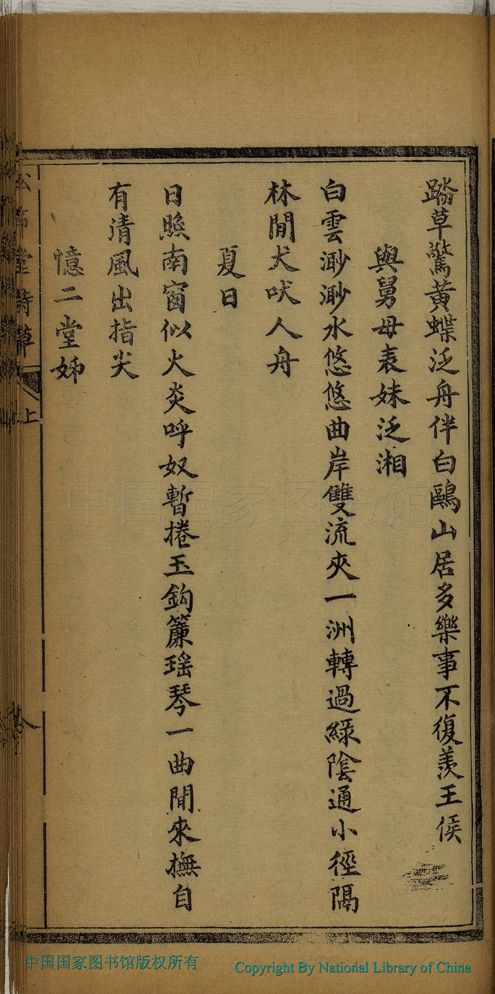 踏草驚黃蝶泛舟伴白鷗山居多樂事不復羨王侯
與舅母表妹泛湘
白雲渺渺水悠悠曲岸雙流夾一洲轉過綠陰通小徑隔
林閒犬吠人舟
夏日
日照南窗似火炎呼奴暫捲玉鈎簾瑤琴一曲閒來撫自
有清風出指尖
憶二堂姊
堂詩草
上
中国国家图书馆版权所有
Copyright By National Library of China